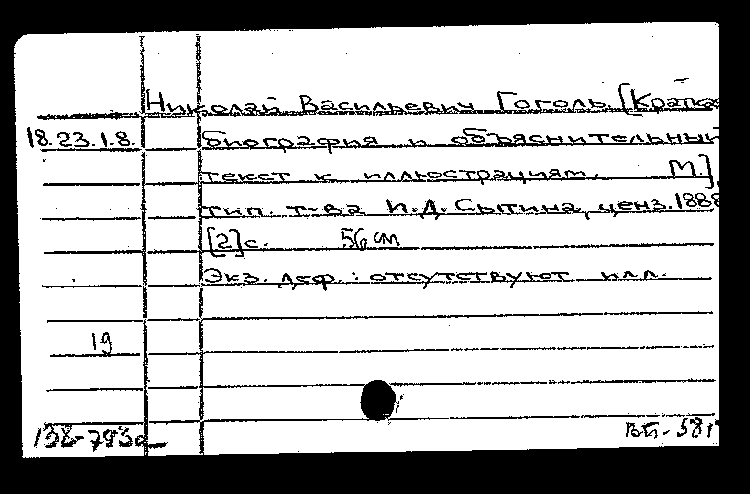 Николай Васильевич Гоголь. [Краткая
18.23.1.8. биография и объяснительный
текст к иллюстрациям. М.],
тип. т-ва И.Д. Сытина, ценз. 1888
[2] с. 56 см
Экз. деф.: отсутствуют илл.
19
138-793а